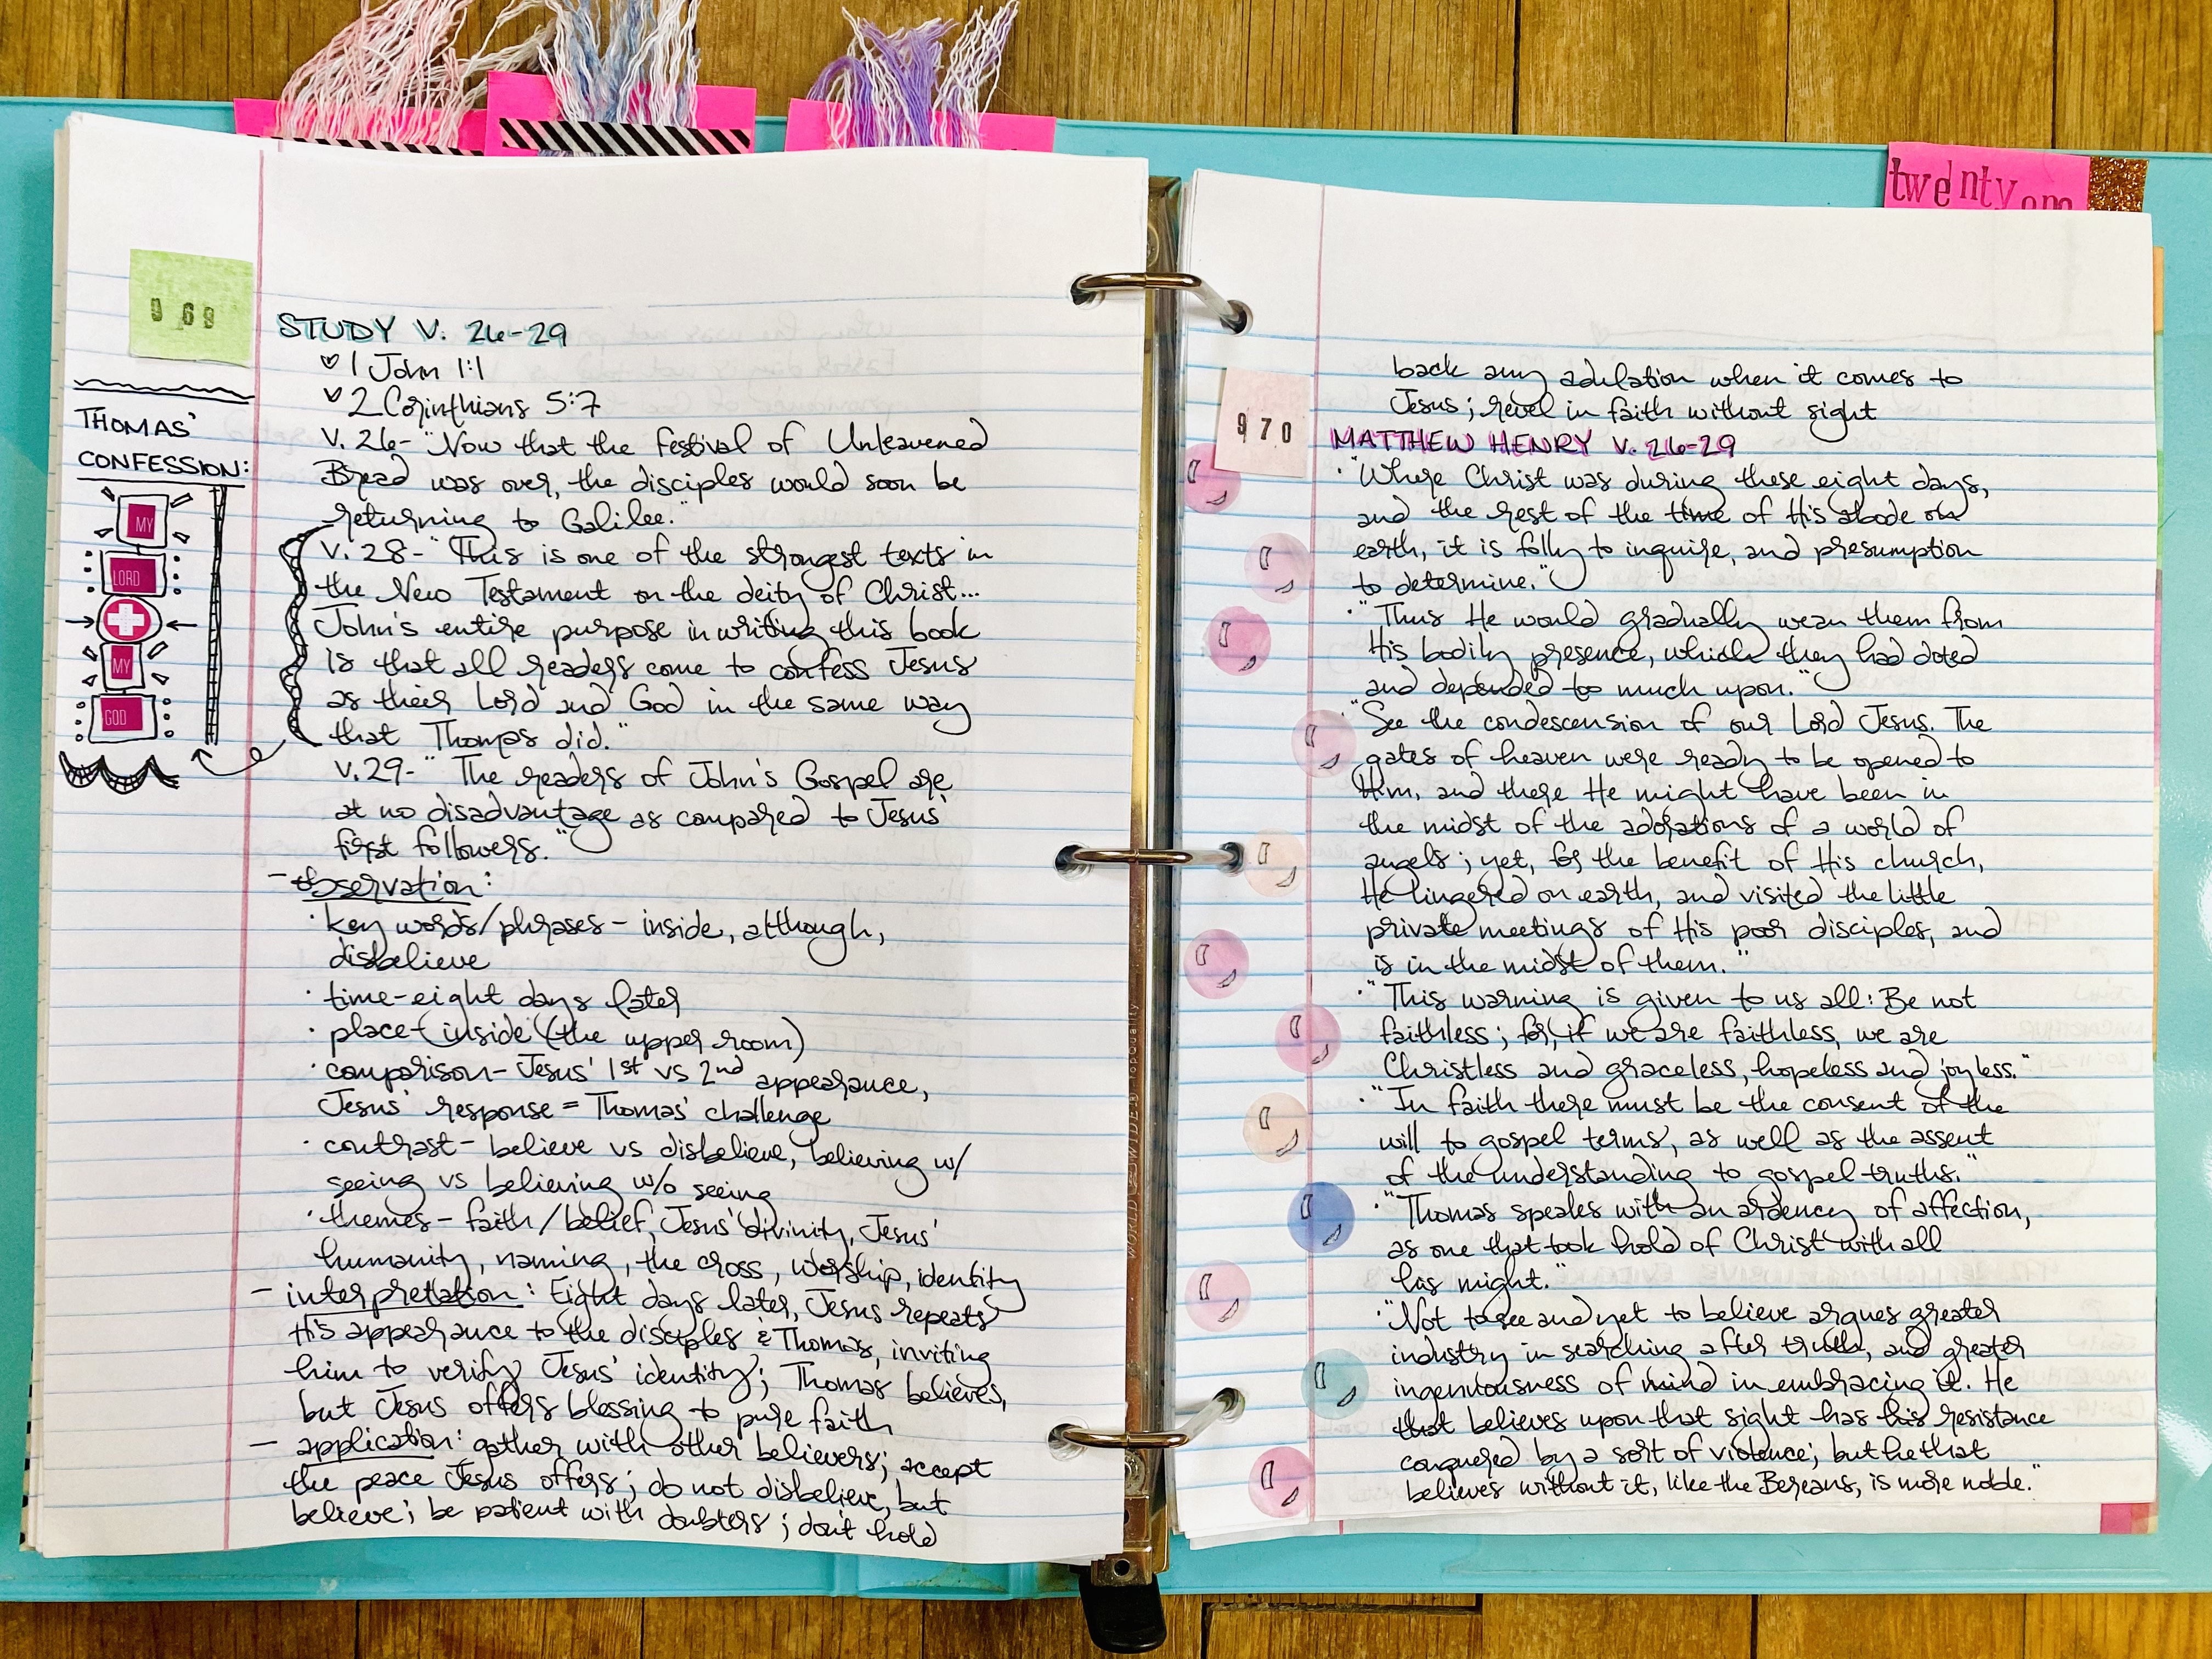 twenty one
969
THOMAS'
CONFESSION:
MY
LORD
MY
GOD
STUDY V. 26-29
♡ 1 John 1:1
♡ 2 Corinthians 5:7
V. 26- "Now that the Festival of Unleavened
Bread was over, the disciples would soon be
returning to Galilee."
V. 28- "This is one of the strongest texts in
the New Testament on the deity of Christ...
John's entire purpose in writing this book
is that all readers come to confess Jesus
as their Lord and God in the same way
that Thomas did."
V. 29- "The readers of John's Gospel are
at no disadvantage as compared to Jesus'
first followers."
- observation:
· key words/phrases - inside, although,
disbelieve
· time - eight days later
· place - inside (the upper room)
· comparison - Jesus' 1st vs 2nd appearance,
Jesus' response = Thomas' challenge
· contrast - believe vs disbelieve, believing w/
seeing vs believing w/o seeing
· themes - faith/belief, Jesus' divinity, Jesus'
humanity, naming, the cross, worship, identity
- interpretation: Eight days later, Jesus repeats
His appearance to the disciples & Thomas, inviting
him to verify Jesus' identity; Thomas believes,
but Jesus offers blessing to pure faith
- application: gather with other believers; accept
the peace Jesus offers; do not disbelieve, but
believe; be patient with doubters; don't hold
970
back any adulation when it comes to
Jesus; revel in faith without sight
MATTHEW HENRY V. 26-29
· "Where Christ was during these eight days,
and the rest of the time of His abode on
earth, it is folly to inquire, and presumption
to determine."
· "Thus He would gradually wean them from
His bodily presence, which they had doted
and depended to much upon."
· "See the condescension of our Lord Jesus. The
gates of heaven were ready to be opened to
Him, and there He might have been in
the midst of the adorations of a world of
angels; yet, for the benefit of His church,
He lingered on earth, and visited the little
private meetings of His poor disciples, and
is in the midst of them."
· "This warning is given to us all: Be not
faithless; for, if we are faithless, we are
Christless and graceless, hopeless and joyless."
· "In faith there must be the consent of the
will to gospel terms, as well as the assent
of the understanding to gospel truths."
· "Thomas speaks with an ardency of affection,
as one that took hold of Christ with all
his might."
· "Not to see and yet to believe argues greater
industry in searching after truth, and greater
ingenuousness of mind in embracing it. He
that believes upon that sight has his resistance
conquered by a sort of violence; but he that
believes without it, like the Bereans, is more noble."